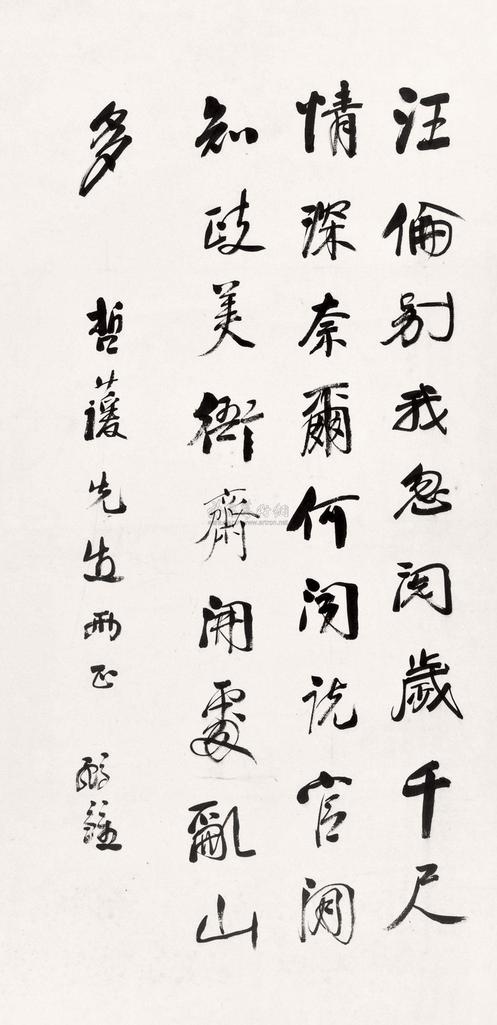 汪倫別我忽閱歲千尺
情深奈爾何聞説官閒
知政美衙齋開處亂山
多
哲 先生兩正
www.artron.net